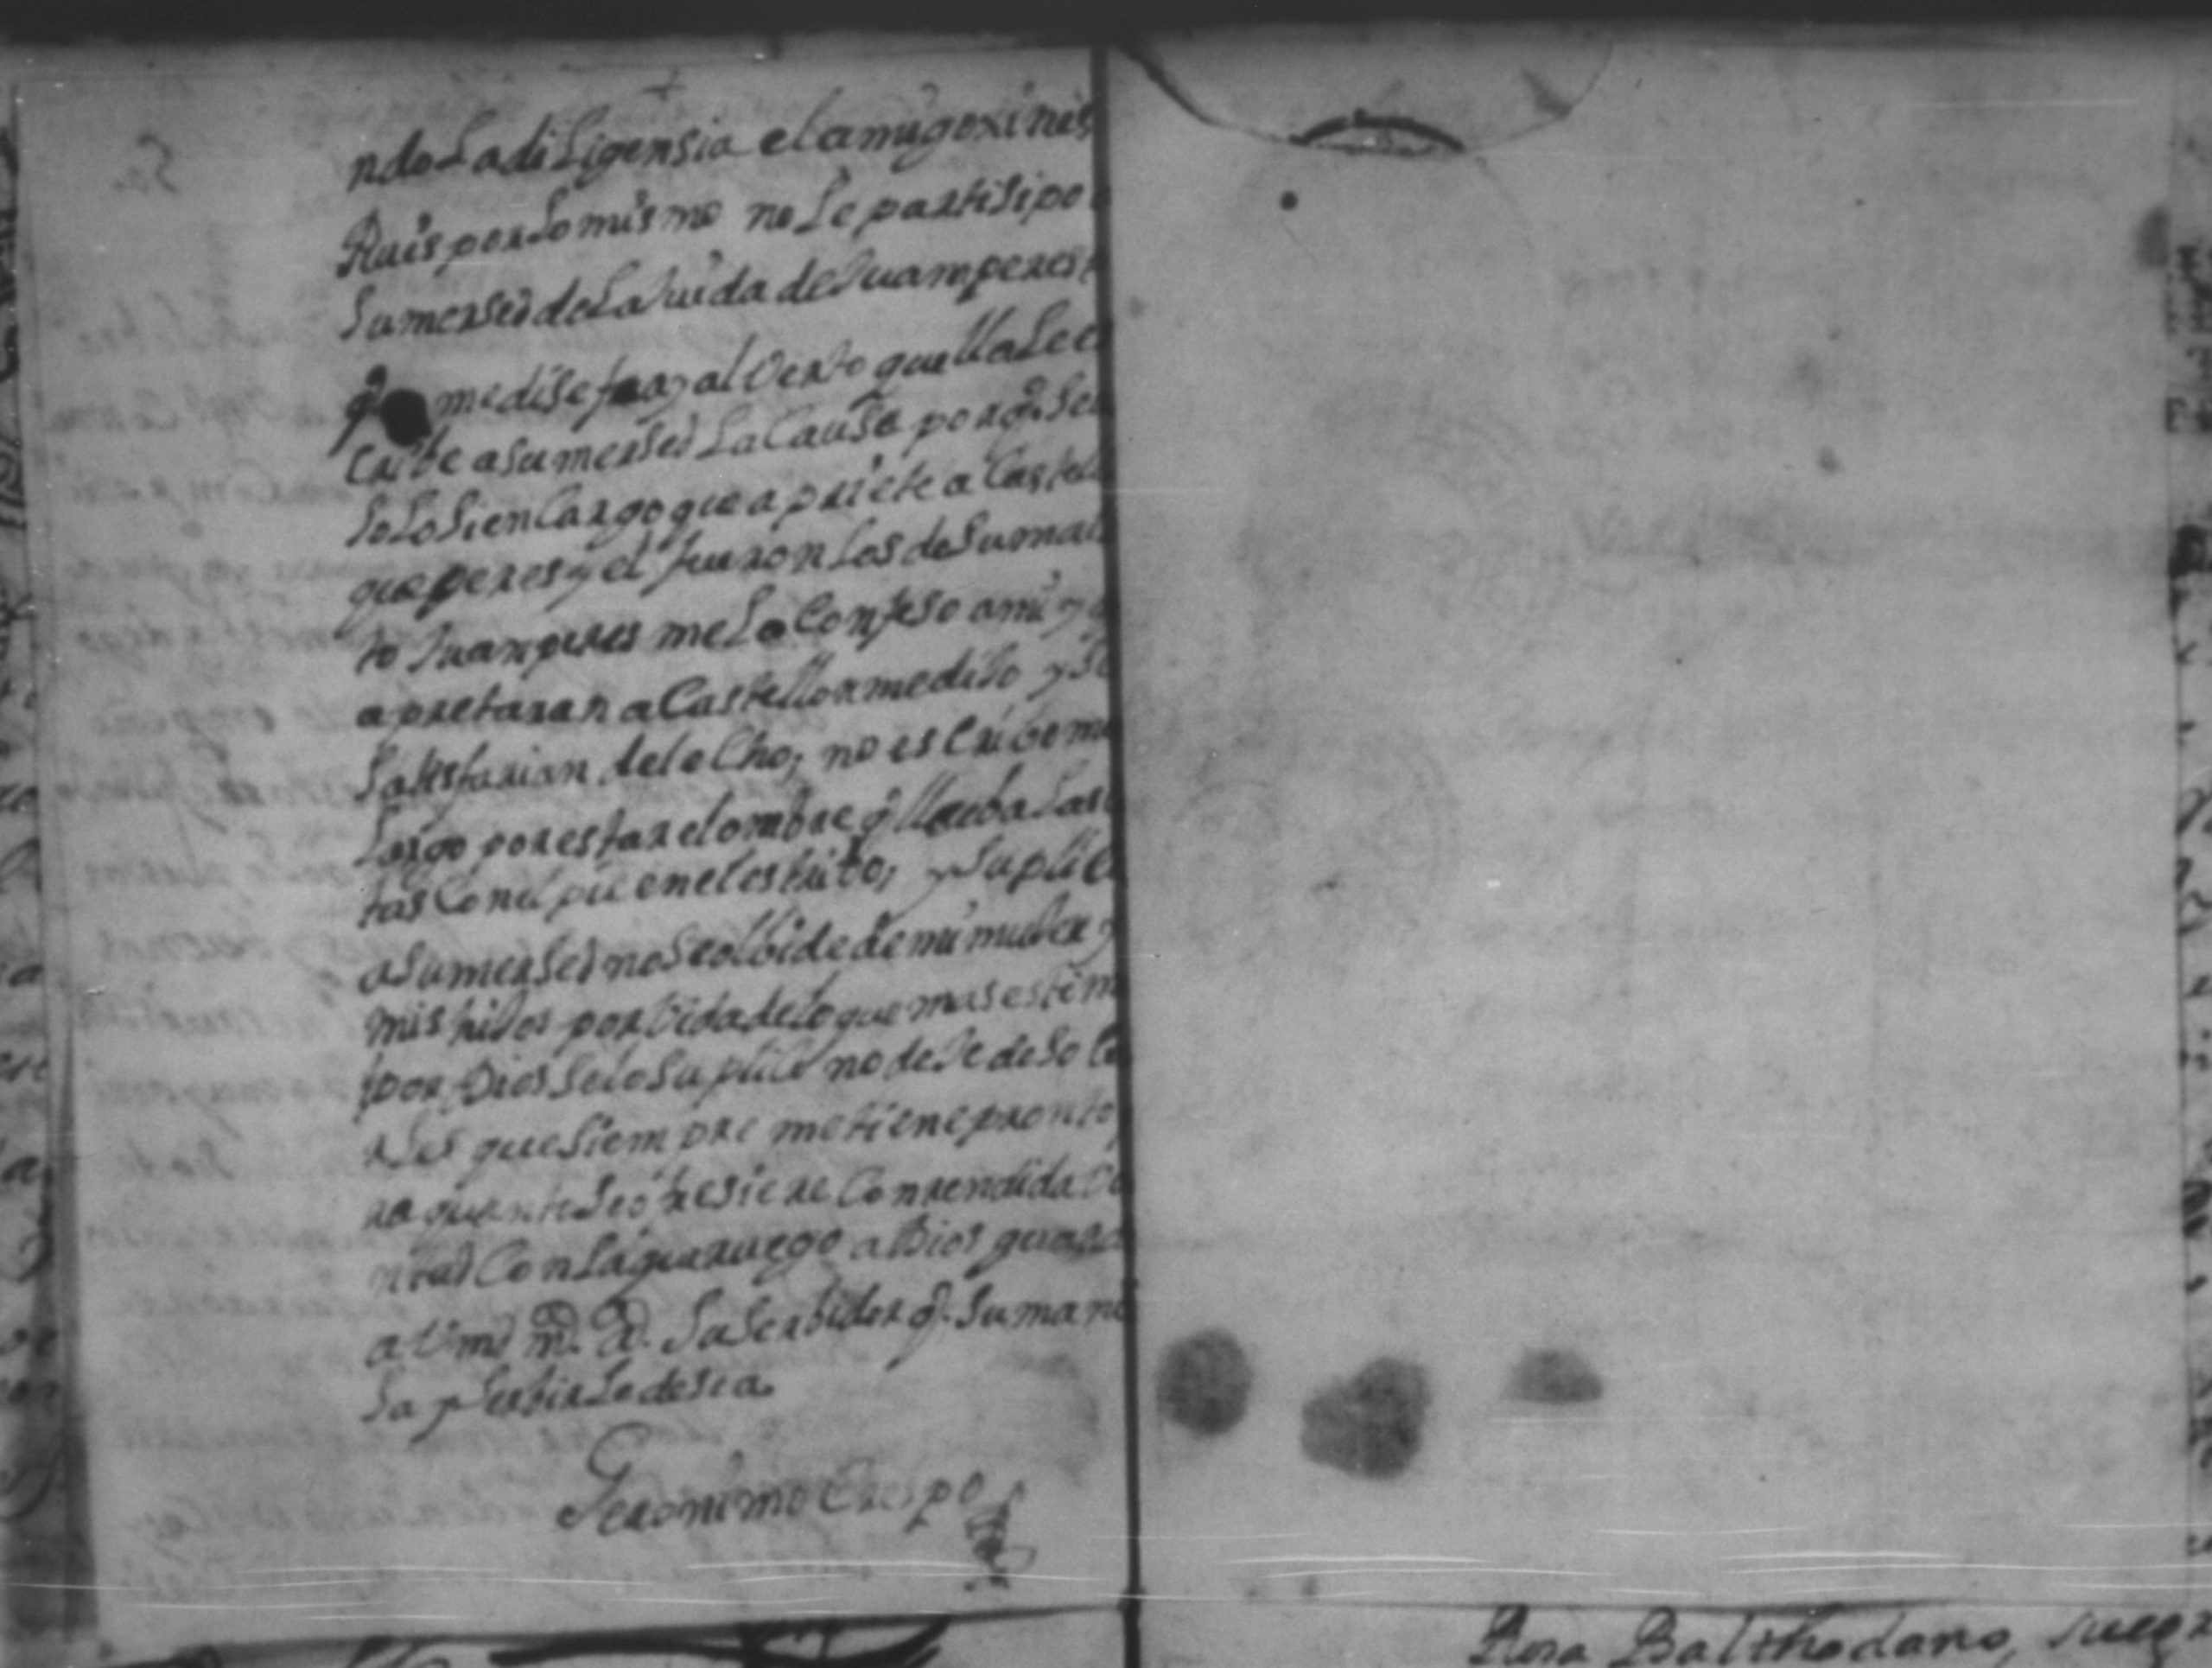 ndo La diligensia el amigo xines
Ruis por lo mismo no le partisipo
Sumersed de la Juida de Juan peres
q me dise fray alverto que lla le es
cribe a sumersed La Causa porq. Se
solo si encargo que apriete a Castell
que peres y el fueron los de Su ma
to Juan peres me lo Confeso a mi y
apretaran a Castellon me diso y se
satisfarian del echo, no escribo mas
Largo por estar el ombre q lleba las
tas Con el pie en el estribo, y suplico
a sumersed no se olbide de mi muller y
mis hidos por bida de lo que mas estim
por Dios se lo suplico no dese de so
rles que siempre me tiene pronto
ra quanto se ofresiere Con rendida bo
ntad Con la que ruego a Dios guard
a Vmd m. a. Su serbidor q. Su mano
sa y serbirle desea.
Geronimo Crespo
Rosa Balthodano,